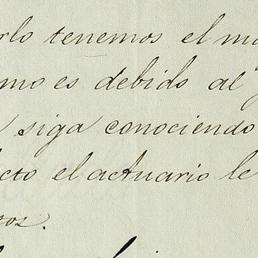 rlo tenemos el m
mo es debido al
siga conociendo
cto el actuario le